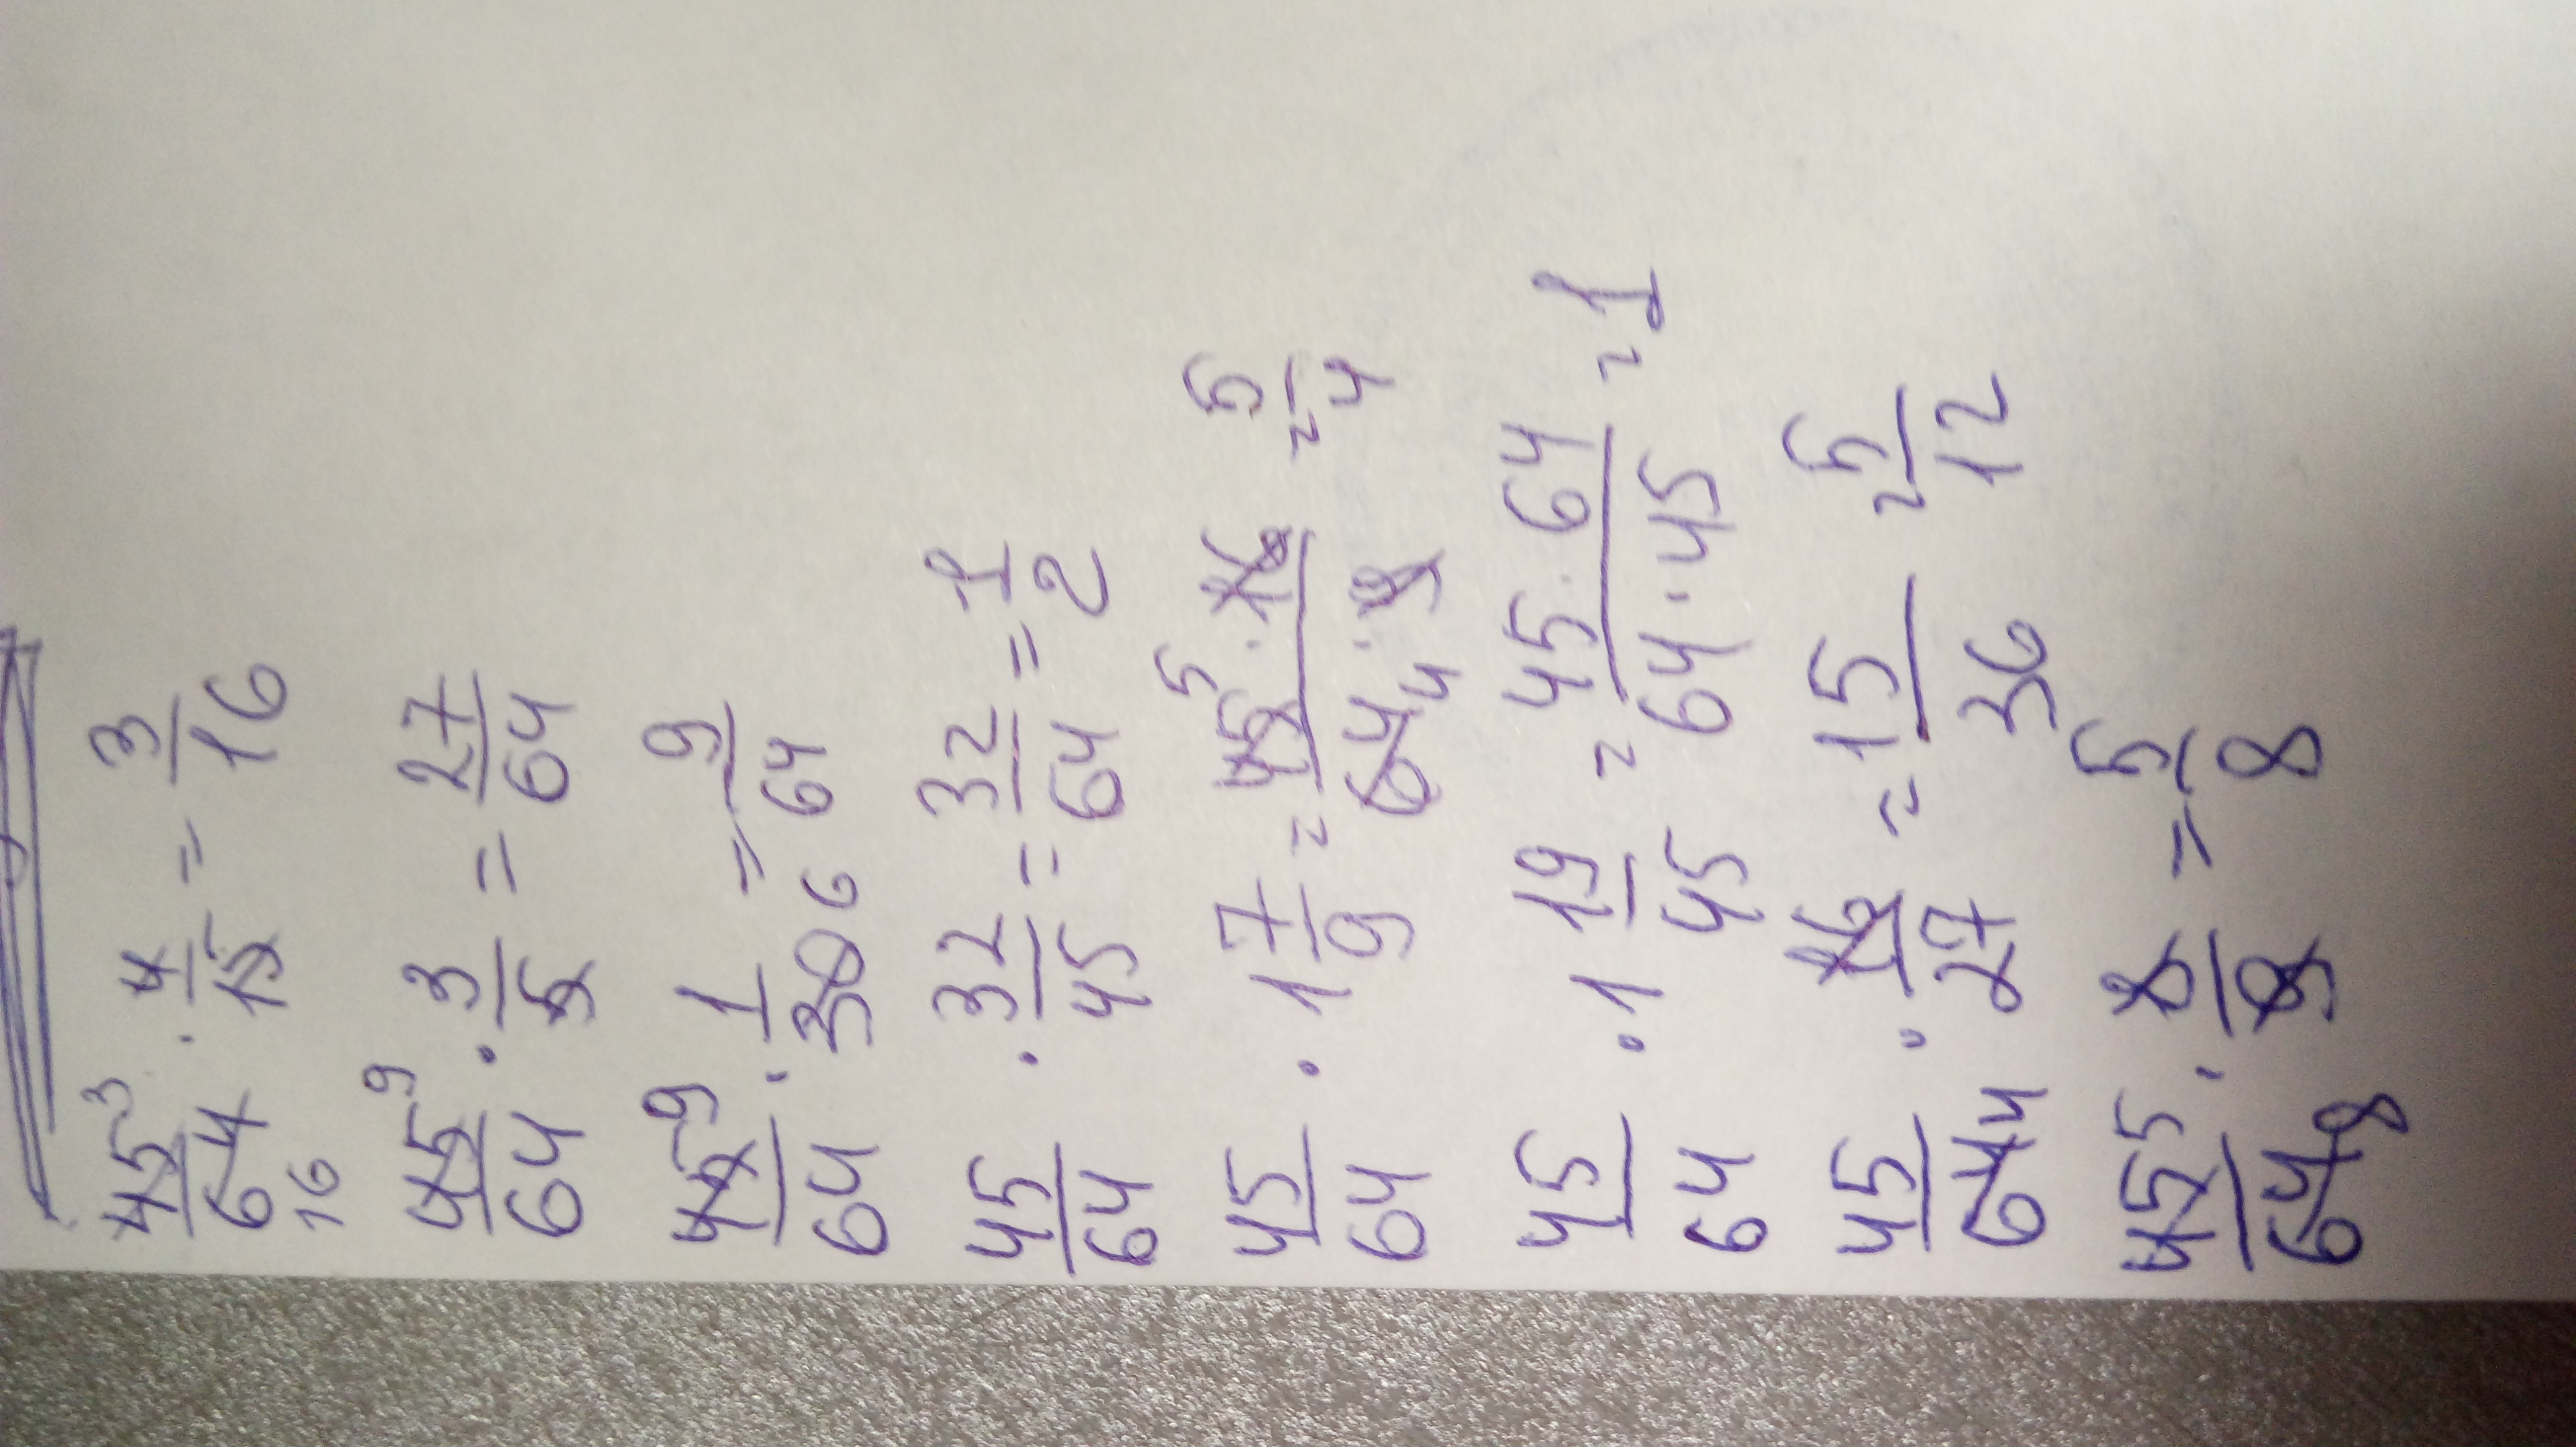 45/64 3 16 · 4/15 = 3/16
45/64 9 · 3/5 = 27/64
45/64 9 · 1/30 6 = 9/64
45/64 · 32/45 = 32/64 = 1/2
45/64 · 1 7/9 = 45 5 · 16/64 4 · 9 = 5/4
45/64 · 1 19/45 = 45 · 64/64 · 45 = 1
45/64 4 · 16/27 = 15/36 = 5/12
45 5/64 8 · 8/9 = 5/8